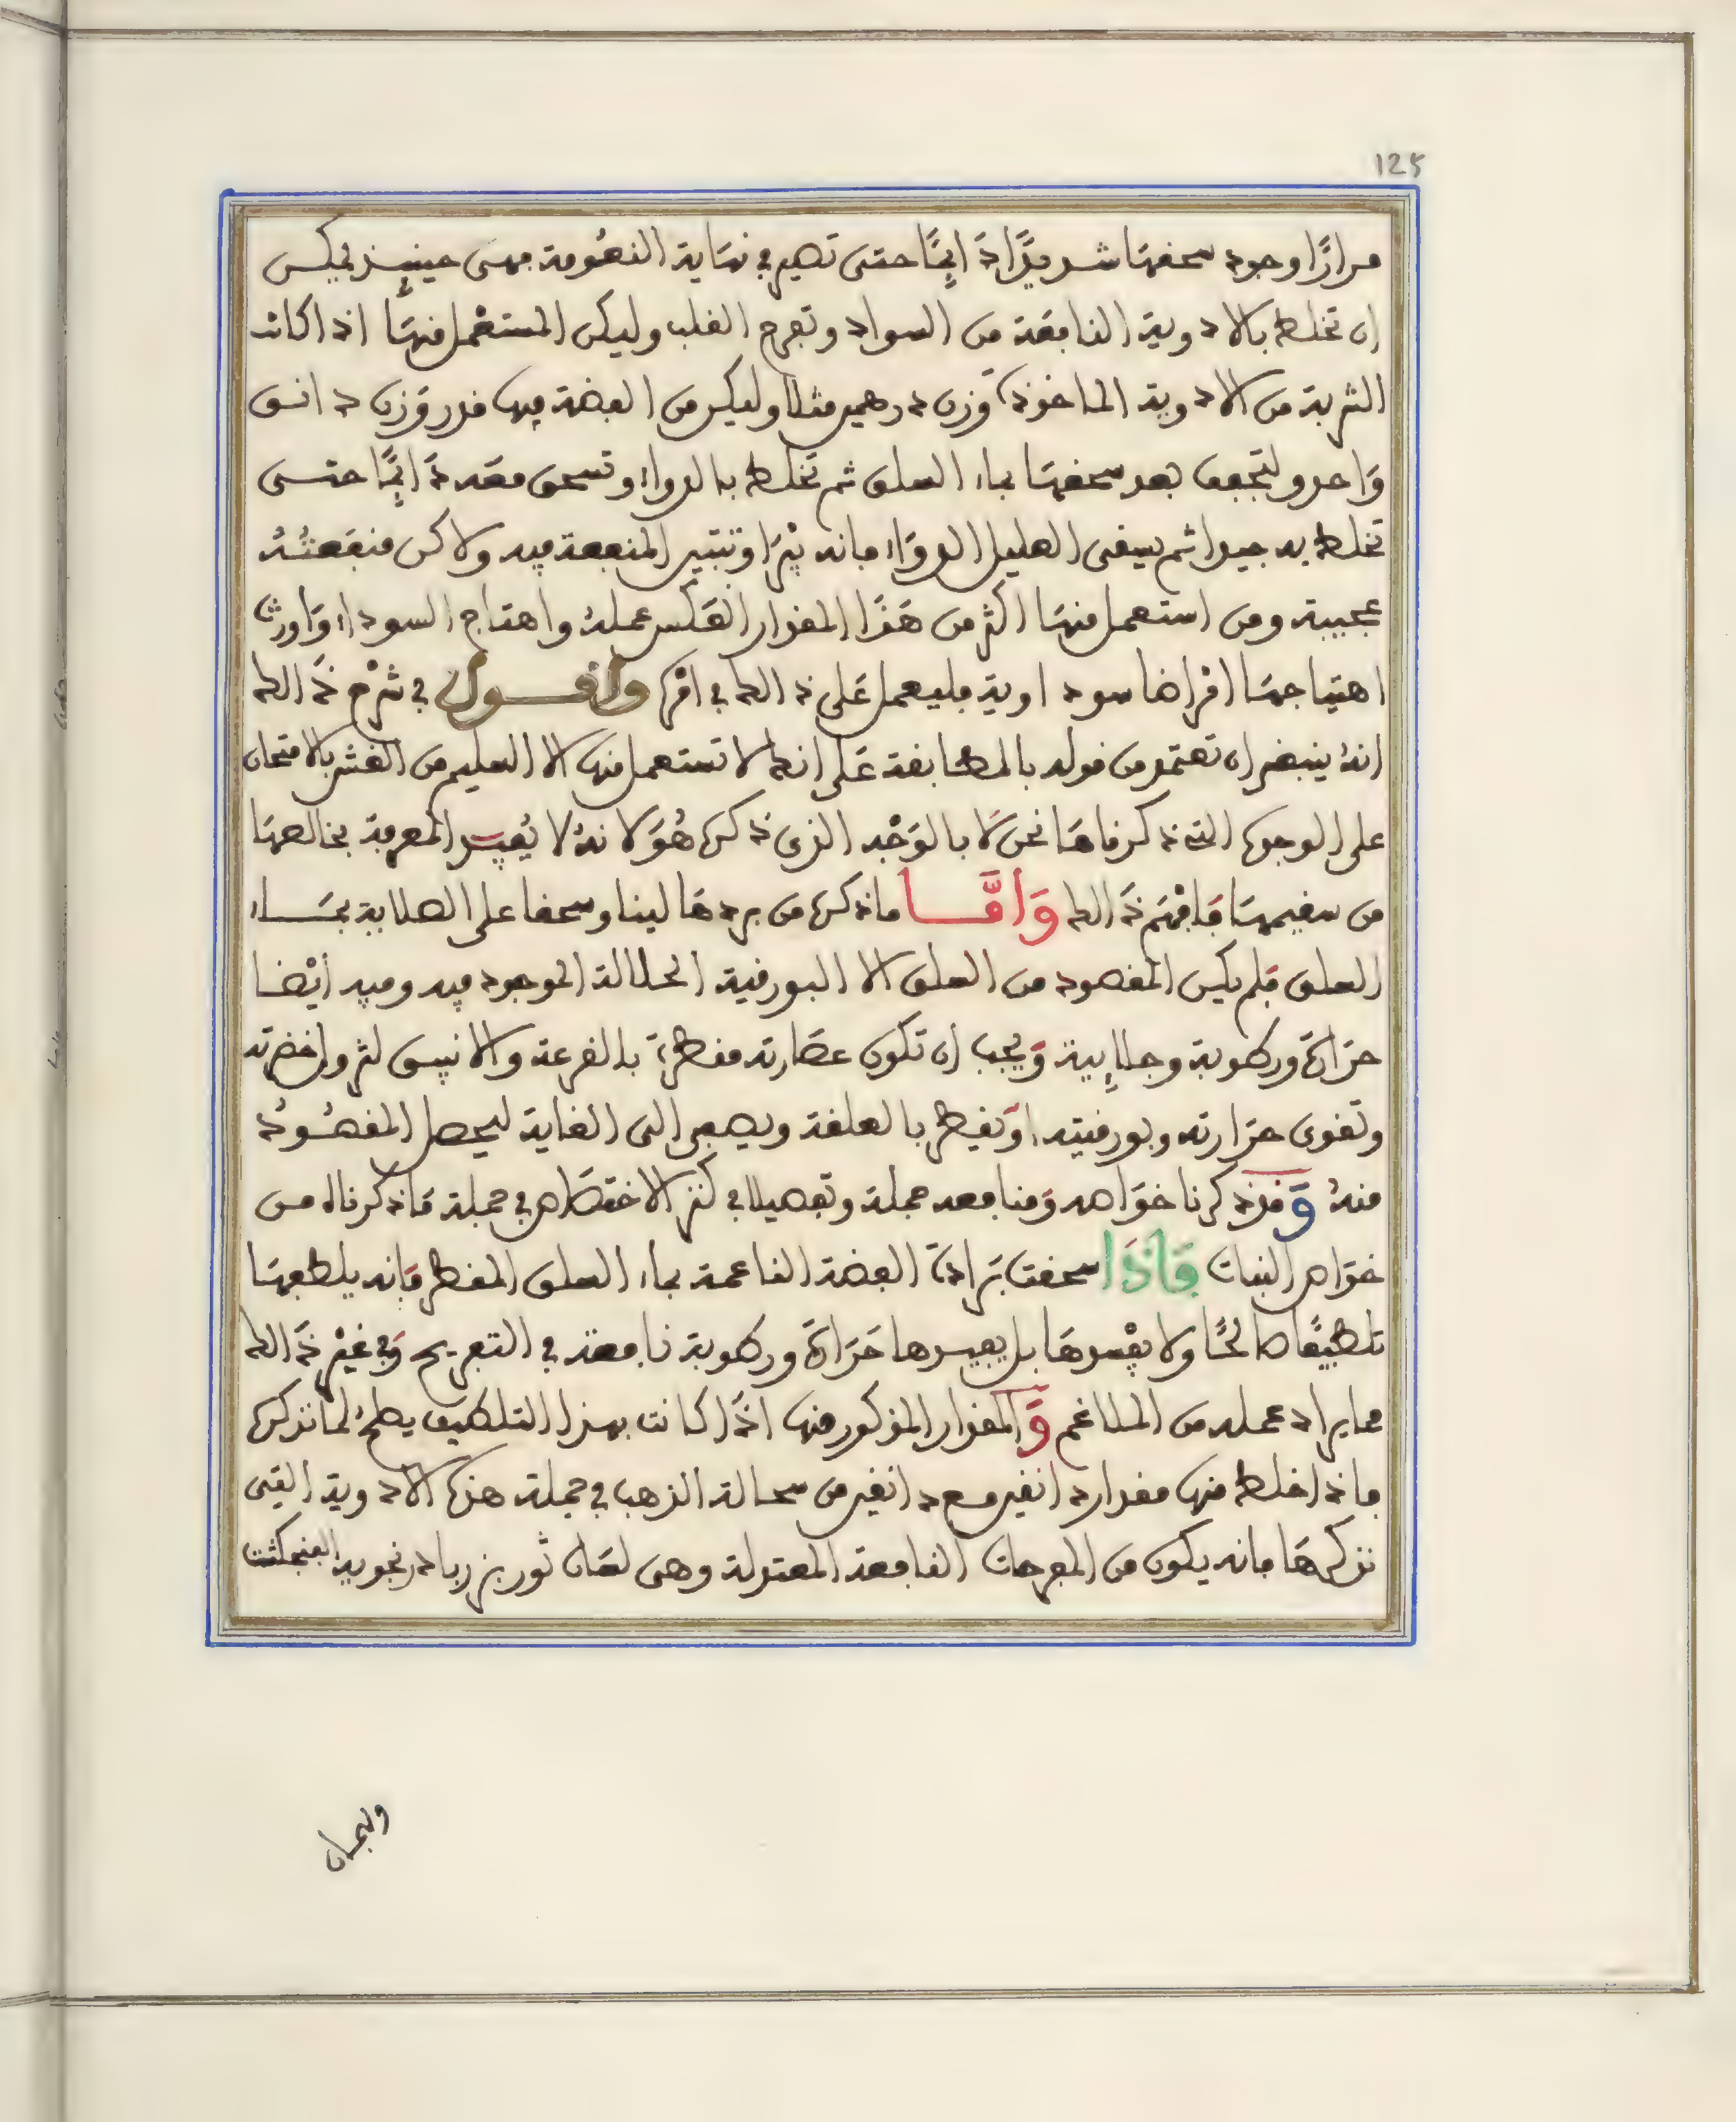 125
مرارًا وجود سحقهَا شديدًا دَايِمًا حتى تصير في نهَاية النعُومة فهى حينيذ يمكن
ان تخلط بالادوية النافعَة من السواد وتفرح القلب وليكن المستعْمل منهَا اذا كانت
الشربة من الادوية الماخوذة وَزن درهمين مثلا وليكن من الفضة فيها قدر وَزن دانق
وَاحد ولتجفف بعد سحقهَا بماء السلق ثم تخلط بالدواء وتسحق معَه دَايمًا حتى
تخلط به جيدا ثم يسقى العليل الدوَاء فانه يبْرَا وتتبين المنفعة فيه ولاكن منفعَتُهُ
عجيبة ومن استعمل منهَا اكثر من هَذَا المقدار انعَكس عملهُ واهتاج السوداء وَاورث
اهتياجهَا امْراضا سوداوية فليعمل عَلى ذالك في امْرِه وَاقول في شَرْح ذَالك
انهُ ينبغى ان تعتمد من قوله بالمطابقة عَلى انك لا تستعمل منها الا السليم من الغش بالامتحان
على الوجوه التي ذكرناهَا نحن لَا بالوَجْه الذى ذكره هُوَ لانهُ لا يُفيد المعرفة بخالصهَا
من سقيمهَا فَافهَم ذَالك وَامَّا ما ذكره من بردهَا لينا وسحقا على الصلاية بمَاء
السلق فَلم يكن المقصود من السلق الا البورقية الحلالة الموجود فيه وفيه ايْضا
حرَارة ورطوبة وجلاءِيية وَيجب ان تكون عصَارته مقطرة بالقرعة والانبيق لتزول خضرته
وتقوى حرَارته وبورقيته اوَ يقطر بالعلقة ويصفى الى الغاية ليحصل المقصُودُ
منهُ وَقد ذكرنا خوَاصه وَمنافعه جملة وتفصيلا في كنز الاختصَاص في جملة مَا ذكرناه من
خوَاص النبات فَاذَا سحقت برَادة الفضة الناعمة بماء السلق المقطر فَانه يلطفهَا
تلطيفًا صالحًا ولا يفْسدهَا بل يفيدها حَرَارة ورطوبة نافعة في التفريح وَفي غيْر ذَالك
مما يراد عمله من الملاغم وَالمقدار المذكور منها اذَا كانت بهذا التلطيف يصلح لما نذكره
فاذا خلط منها مقدار دانقين مع دانقين من سحالة الذهب في جملة هذه الادوية التى
نذكرهَا فانه يكون من المفرحات النافعة المعتدلة وهى لسَان ثور بزرباد رنجوية الفنجكشت
والبحمان